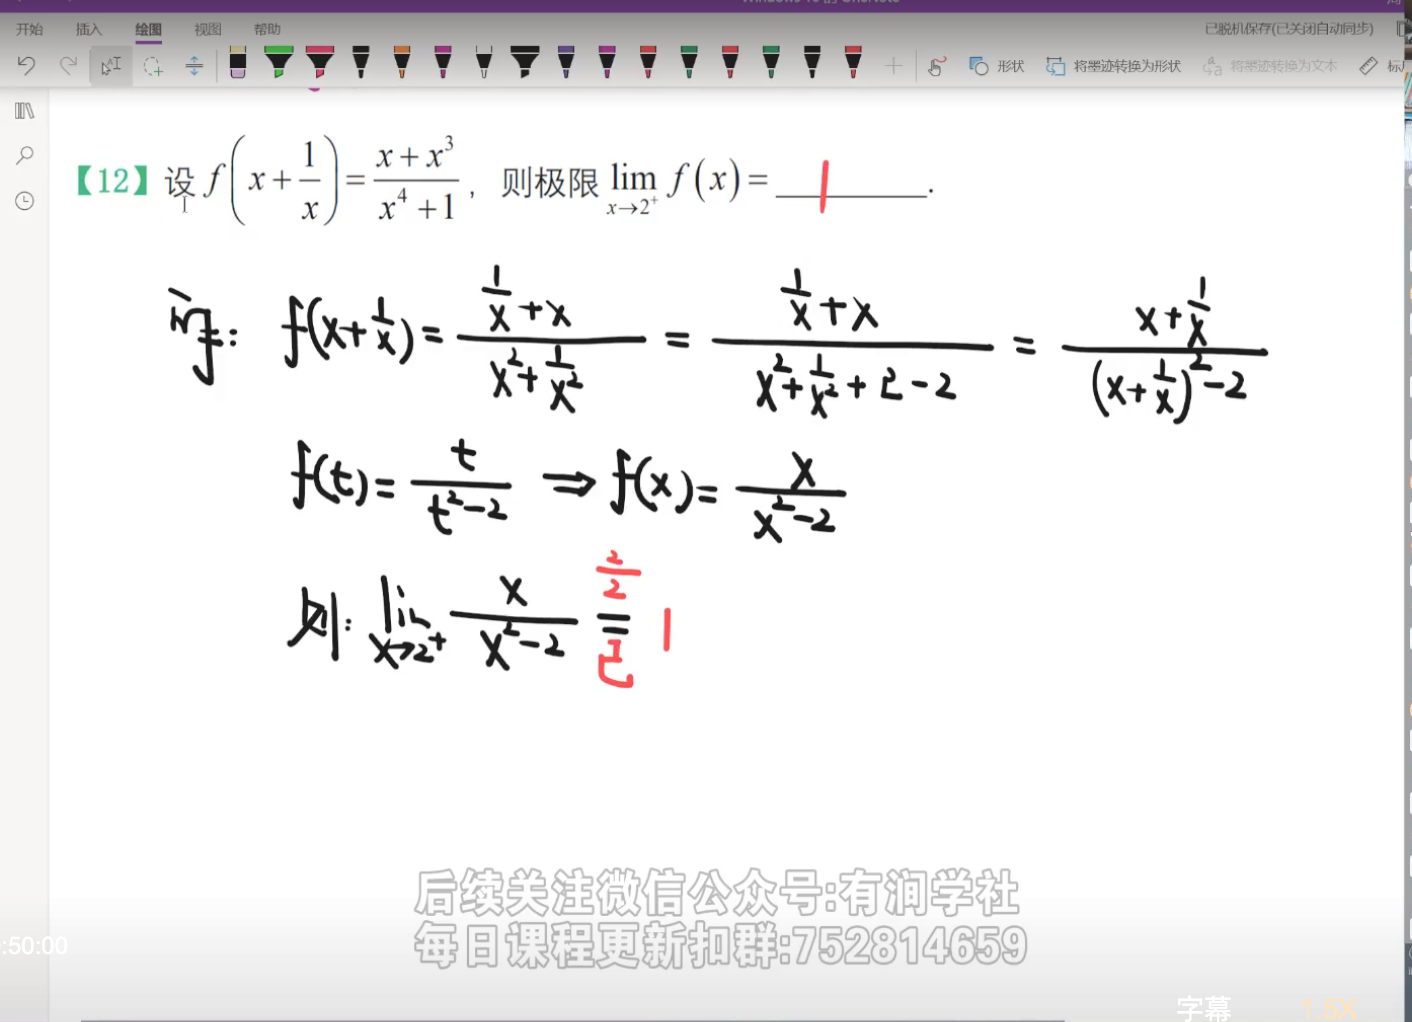 开始 插入 绘图 视图 帮助 已脱机保存(已关闭自动同步)
形状 将墨迹转换为形状 将墨迹转换为文本
【12】设 f(x + 1/x) = (x + x³)/(x⁴ + 1), 则极限 lim_{x→2⁺} f(x) = 1.
f(x+1/x) = (1/x + x)/(x² + 1/x²) = (1/x + x)/(x² + 1/x² + 2 - 2) = (x + 1/x)/((x + 1/x)² - 2)
f(t) = t/(t² - 2) ⇒ f(x) = x/(x² - 2)
则: lim_{x→2⁺} x/(x² - 2) = 2/2 1
后续关注微信公众号:有润学社
:50:00 每日课程更新扣群:752814659
字幕 1.5X